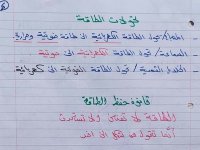 تحولات الطاقة
- المصباح / تحول الطاقة الكهربائية الى طاقة ضوئية وحرارية
- السماعة / تحول الطاقة الكهربائية الى صوتية
- الخلايا الشمسية / تحول الطاقة الضوئية الى كهربائية
قانون حفظ الطاقة
الطاقة لا تفنى ولا تستحدث
انما تتحول من شكل الى اخر